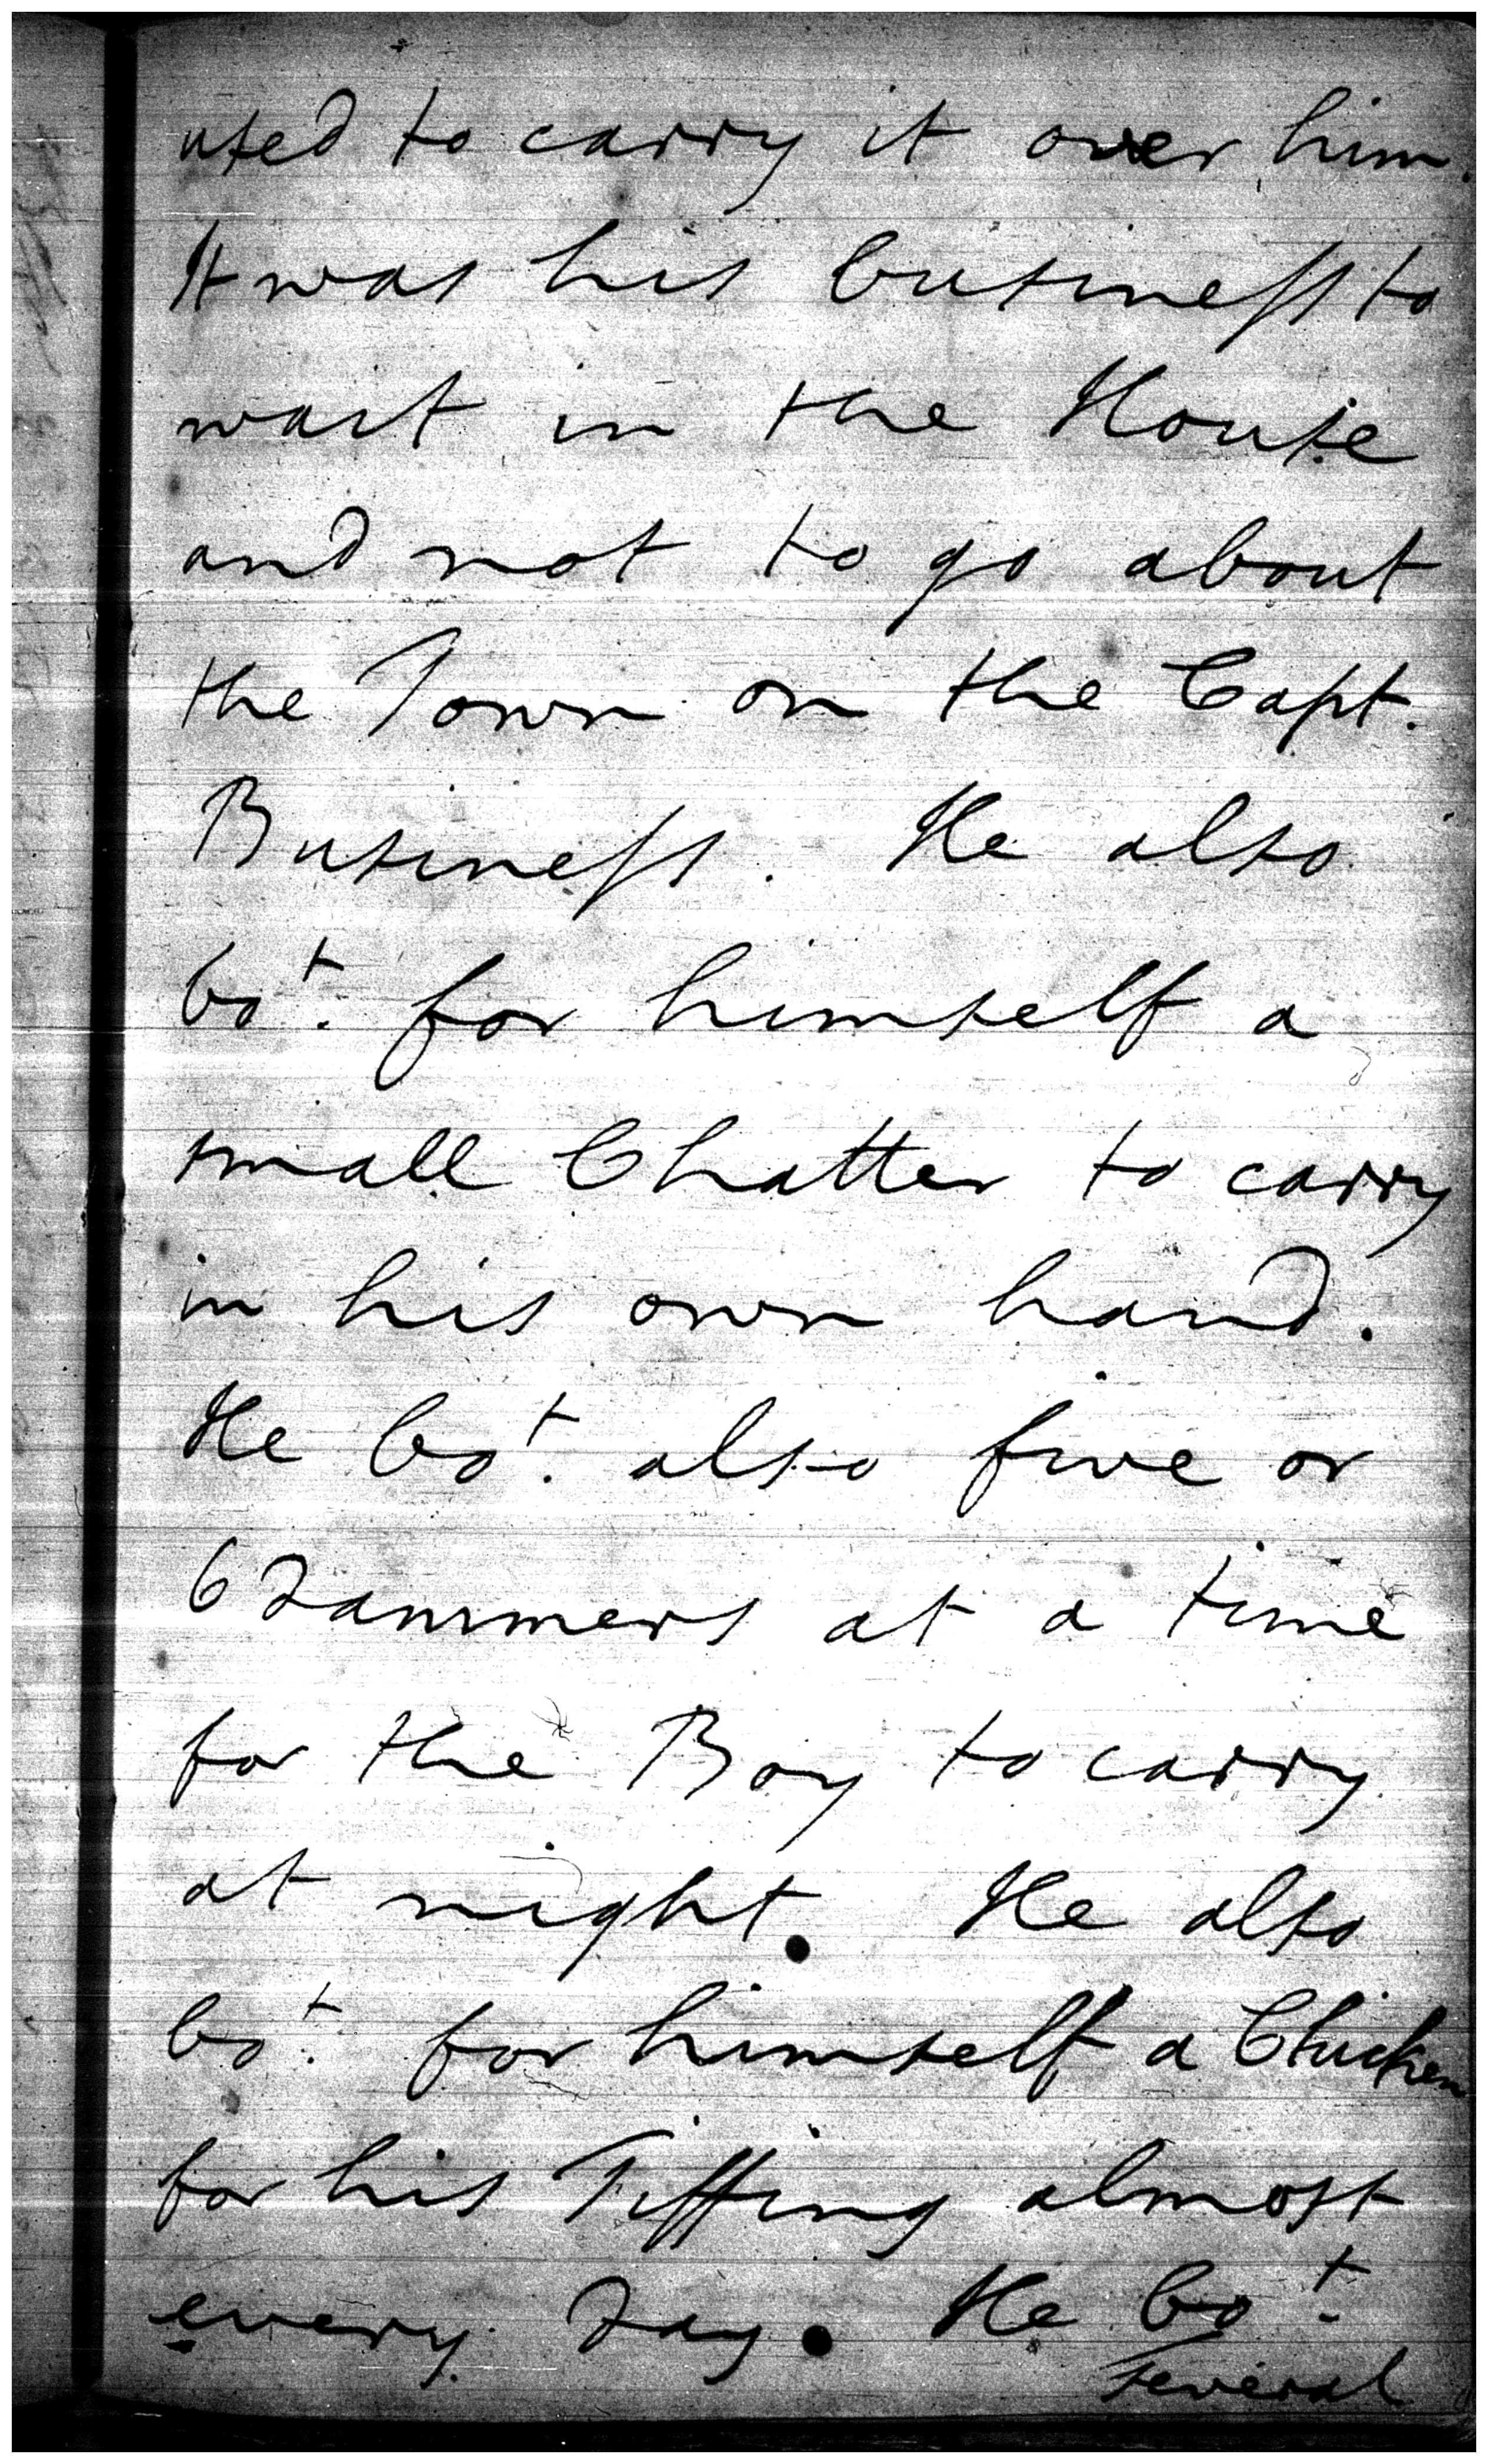 used to carry it over him.
It was his business to
wait in the House
and not to go about
the Town on the Capt.
Business. He also
bot. for himself a
small Chatter to carry
in his own hand.
He bot. also five or
6 Dammers at a time
for the Boy to carry
at night. He also
bot. for himself a Chicken
for his Tiffing almost
every Day. He bot.
several